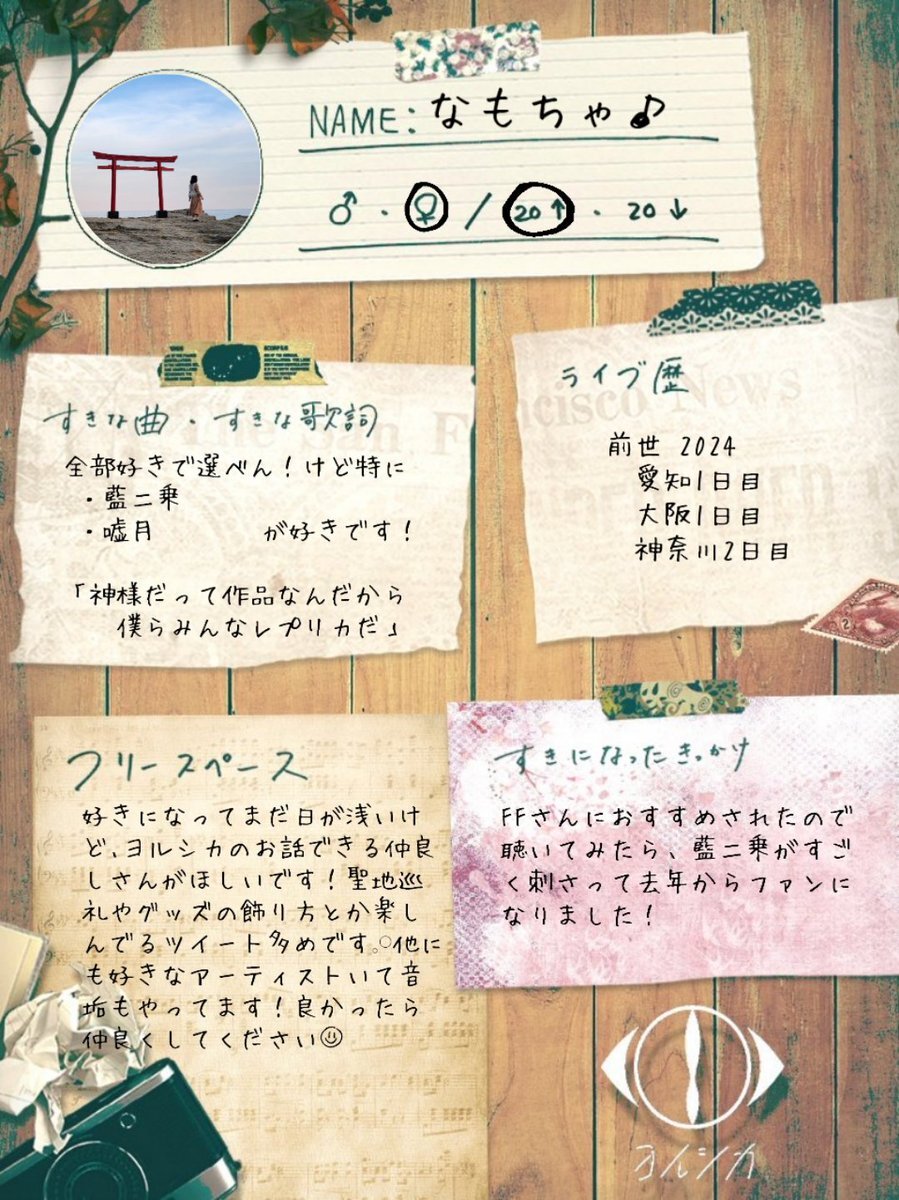 NAME: なもちゃ♪
♂・♀/20↑・20↓
すきな曲・すきな歌詞
全部好きで選べん!けど特に
・藍二乗
・嘘月 が好きです!
「神様だって作品なんだから
僕らみんなレプリカだ」
ライブ歴
前世 2024
愛知1日目
大阪1日目
神奈川2日目
フリースペース
好きになってまだ日が浅いけ
ど、ヨルシカのお話できる仲良
しさんがほしいです!聖地巡
礼やグッズの飾り方とか楽し
んでるツイート多めです。他に
も好きなアーティストいて音
垢もやってます!良かったら
仲良くしてください☺
すきになったきっかけ
FFさんにおすすめされたので
聴いてみたら、藍二乗がすご
く刺さって去年からファンに
なりました!
ヨルシカ